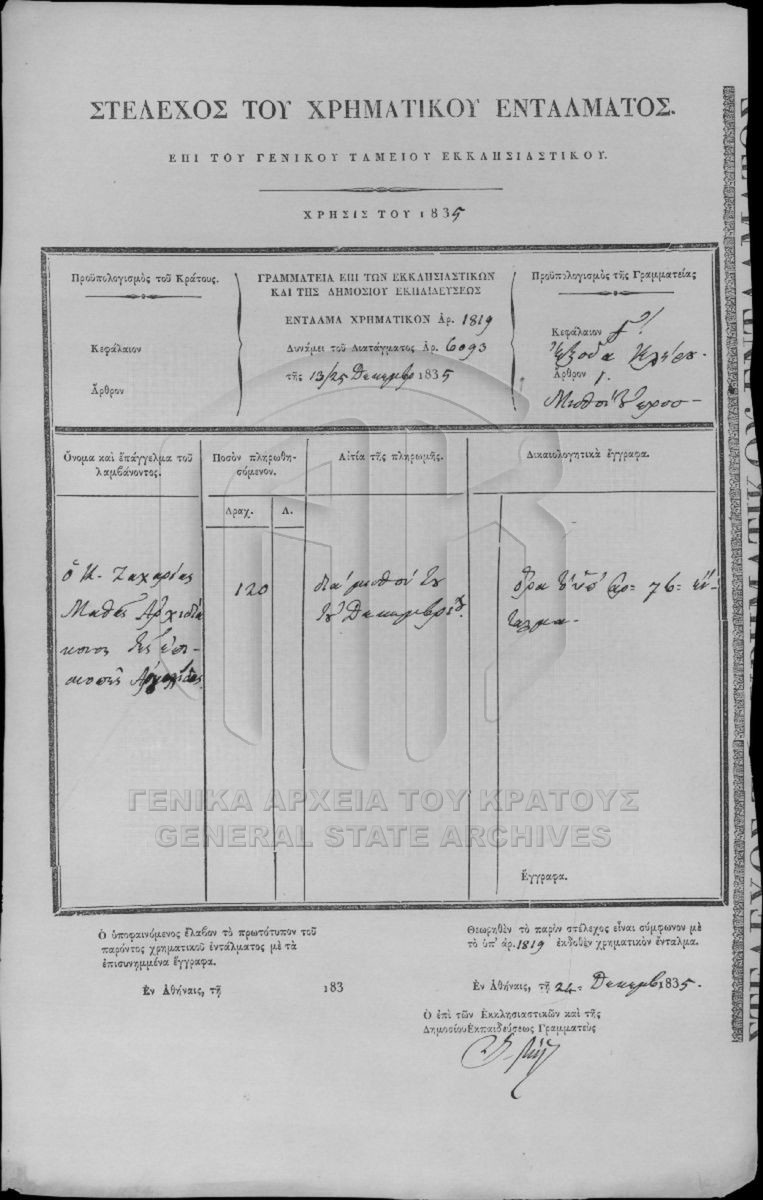 ΣΤΕΛΕΧΟΣ ΤΟΥ ΧΡΗΜΑΤΙΚΟΥ ΕΝΤΑΛΜΑΤΟΣ.
ΕΠΙ ΤΟΥ ΓΕΝΙΚΟΥ ΤΑΜΕΙΟΥ ΕΚΚΛΗΣΙΑΣΤΙΚΟΥ.
ΧΡΗΣΙΣ ΤΟΥ 1835
Προϋπολογισμὸς τοῦ Κράτους.
Κεφάλαιον
Ἄρθρον
ΓΡΑΜΜΑΤΕΙΑ ΕΠΙ ΤΩΝ ΕΚΚΛΗΣΙΑΣΤΙΚΩΝ
ΚΑΙ ΤΗΣ ΔΗΜΟΣΙΟΥ ΕΚΠΑΙΔΕΥΣΕΩΣ
ΕΝΤΑΛΜΑ ΧΡΗΜΑΤΙΚΟΝ Ἀρ. 1819
Δυνάμει τοῦ Διατάγματος Ἀρ. 6093
τῆς 13/25 Δεκεμβρ 1835
Προϋπολογισμὸς τῆς Γραμματείας
Κεφάλαιον
Ἔξοδα Κλήρου
Ἄρθρον 1.
Μισθοὶ
Ὄνομα καὶ ἐπάγγελμα τοῦ
λαμβάνοντος.
Ποσὸν πληρωθη-
σόμενον.
Δραχ. Λ.
Αἰτία τῆς πληρωμῆς.
Δικαιολογητικὰ ἔγγραφα.
ὁ Κ. Ζαχαρίας
Μαθᾶς Ἀρχιδιά
κονος τῆς ἐπι-
σκοπῆς Ἀργολίδος
120
διὰ μισθόν του
τοῦ Δεκεμβρίου.
ὅρα τὸ ὑπ' Ἀρ= 76= ἔν-
ταλμα-
Ἔγγραφα.
Ὁ ὑποφαινόμενος ἔλαβον τὸ πρωτότυπον τοῦ
παρόντος χρηματικοῦ ἐντάλματος μὲ τὰ
ἐπισυνημμένα ἔγγραφα.
Ἐν Ἀθήναις, τῇ 183
Θεωρηθὲν τὸ παρὸν στέλεχος εἶναι σύμφωνον μὲ
τὸ ὑπ' ἀρ. 1819 ἐκδοθὲν χρηματικὸν ἔνταλμα.
Ἐν Ἀθήναις, τῇ 24= Δεκεμβ 1835.
Ὁ ἐπὶ τῶν Ἐκκλησιαστικῶν καὶ τῆς
Δημοσίου Ἐκπαιδεύσεως Γραμματεὺς
ΓΕΝΙΚΑ ΑΡΧΕΙΑ ΤΟΥ ΚΡΑΤΟΥΣ
GENERAL STATE ARCHIVES